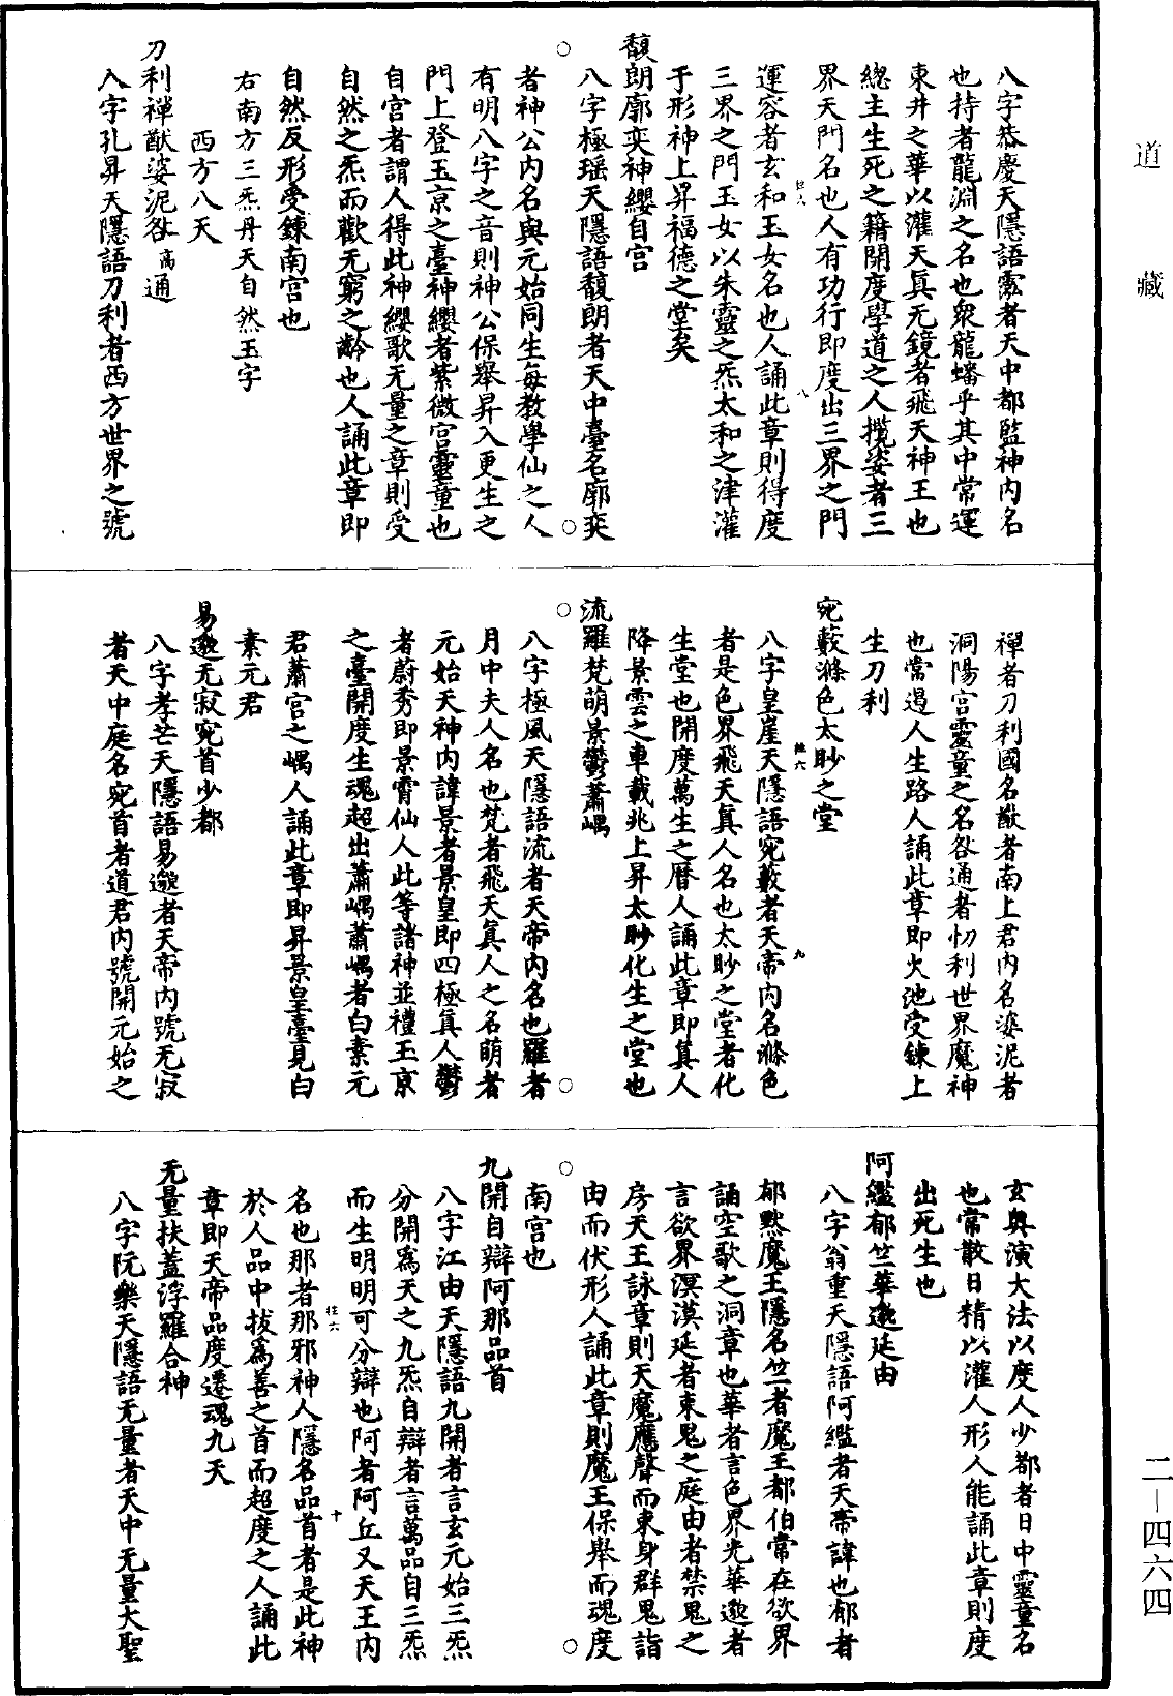 道藏
八字恭慶天隱語㝹者天中都監神内名
也持者龍淵之名也衆龍蟠乎其中常運
東井之華以灌天真无鏡者飛天神王也
總主生死之籍開度學道之人攬姿者三
界天門名也人有功行即度出三界之門
運容者玄和玉女名也人誦此章則得度
三界之門玉女以朱靈之炁太和之津灌
于形神上昇福德之堂矣
馥朗廓奕神纓自宫
八字極瑶天隱語馥朗者天中臺名廓奕
者神公内名與元始同生每教學仙之人
有明八字之音則神公保舉昇入更生之
門上登玉京之臺神纓者紫微宫靈童也
自宫者謂人得此神纓歌无量之章則受
自然之炁而歡无窮之齡也人誦此章即
自然反形受鍊南宫也
右南方三炁丹天自然玉字
西方八天
刀利禪猷婆泥咎通
八字孔昇天隱語刀利者西方世界之號
禪者刀利國名猷者南上君内名婆泥者
洞陽宫靈童之名咎通者忉利世界魔神
也常遏人生路人誦此章即火池受鍊上
生刀利
宛藪滌色太眇之堂
八字皇崖天隱語宛藪者天帝内名滌色
者是色界飛天真人名也太眇之堂者化
生堂也開度萬生之曆人誦此章即真人
降景雲之車載兆上昇太眇化生之堂也
流羅梵萌景鬱蕭嵎
八字極風天隱語流者天帝内名也羅者
月中夫人名也梵者飛天真人之名萌者
元始天神内諱景者景皇即四極真人鬱
者蔚秀即景霄仙人此等諸神並禮玉京
之臺開度生魂超出蕭嵎蕭嵎者白素元
君蕭宫之嵎人誦此章即昇景皇臺見白
素元君
易邈无寂宛首少都
八字孝芒天隱語易邈者天帝内號无寂
者天中庭名宛首者道君内號開元始之
玄奥演大法以度人少都者日中靈童名
也常散日精以灌人形人能誦此章則度
出死生也
阿鑑郁竺華邈延由
八字翁重天隱語阿鑑者天帝諱也郁者
郁黙魔王隱名竺者魔王都伯常在欲界
誦空歌之洞章也華者言色界光華邈者
言欲界溟漠延者束鬼之庭由者禁鬼之
房天王詠章則天魔應聲而束身群鬼詣
由而伏形人誦此章則魔王保舉而魂度
南宫也
九開自辯阿那品首
八字江由天隱語九開者言玄元始三炁
分開爲天之九炁自辯者言萬品自三炁
而生明明可分辯也阿者阿丘又天王内
名也那者那邪神人隱名品首者是此神
於人品中拔爲善之首而超度之人誦此
章即天帝品度遷魂九天
无量扶蓋浮羅合神
八字阮樂天隱語无量者天中无量大聖
二—四六四